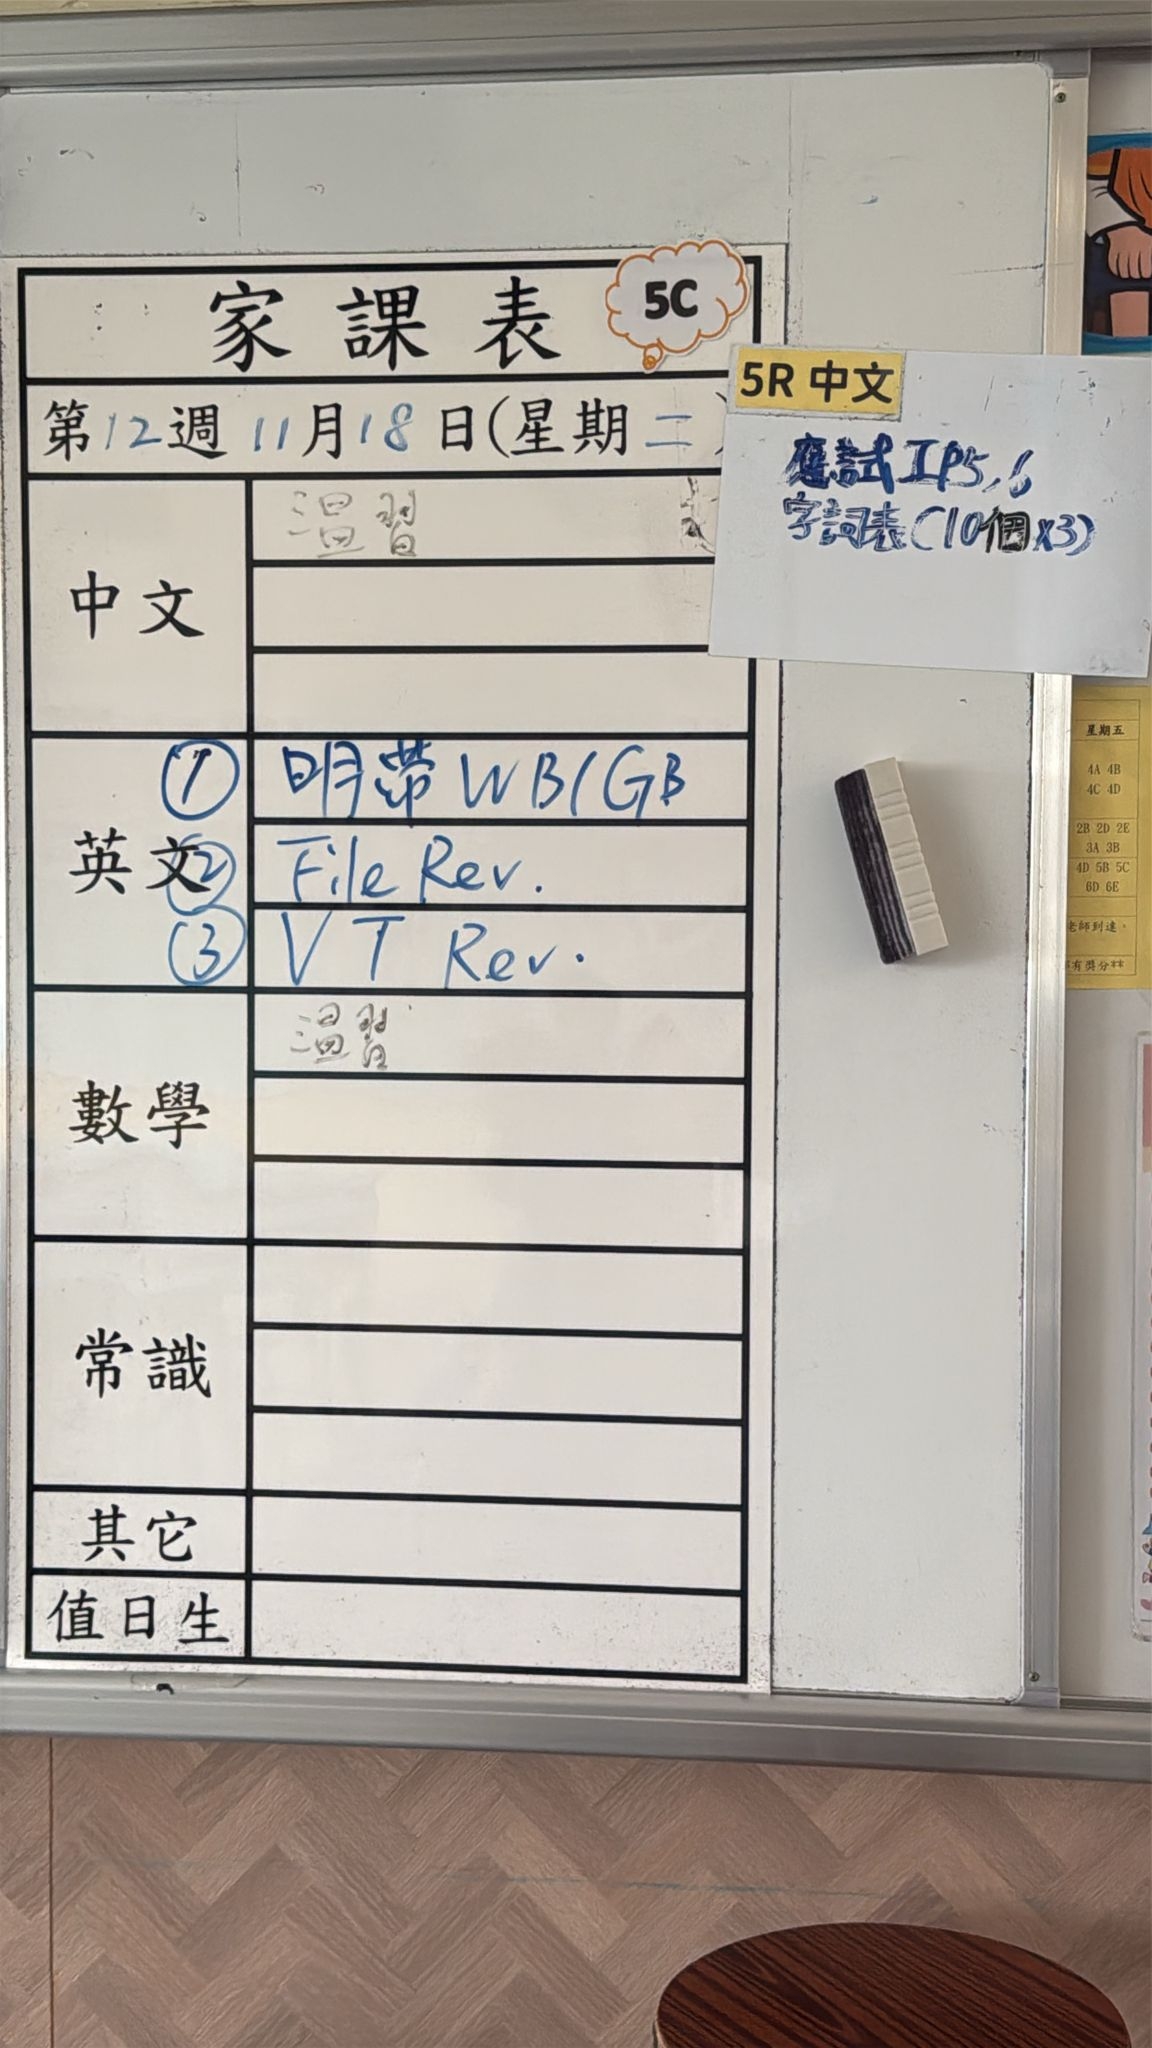 家課表
5C
第12週 11月18日(星期二
5R 中文
應試工P5,6
字詞表(10個x3)
中文
温習
英文
① 明帶 WB/GB
② File Rev.
③ VT Rev.
數學
温習
常識
其它
值日生
星期五
4A 4B
4C 4D
2B 2D 2E
3A 3B
4D 5B 5C
6D 6E
老師到達，
有獎分**